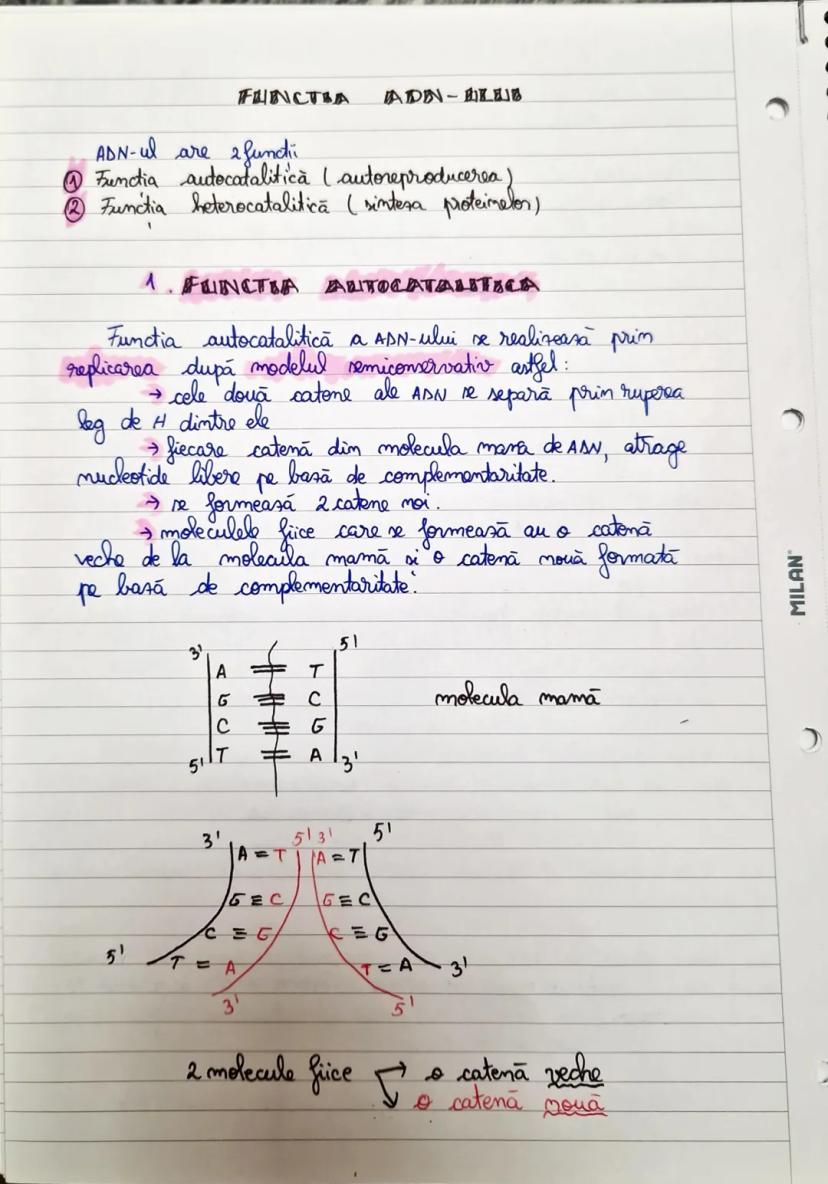 FUNCTIA ADN-ULUI
ADN-ul are 2 funcții
① Functia autocatalitică (autoreproducerea)
② Funcția heterocatalitică (sinteza proteinelor)
1. FUNCTIA AUTOCATALITICA
Functia autocatalitică a ADN-ului se realizează prin
replicarea după modelul semiconservativ astfel:
→ cele două catene ale ADN se separă prin ruperea
leg de H dintre ele
→ fiecare catenă din molecula mamă de ADN, atrage
nucleotide libere pe bază de complementaritate.
→ se formează 2 catene noi.
→ moleculele fiice care se formează au o catenă
veche de la molecula mamă si o catenă nouă formată
pe bază de complementaritate.
3' 5'
A T
G C molecula mamă
C G
T A
5' 3'
3' 5' 3' 5'
A = T A = T
G ≡ C G ≡ C
C ≡ G C ≡ G
5' T = A T = A 3'
3' 5'
2 molecule fiice → o catenă veche
↘ o catenă nouă
MILAN